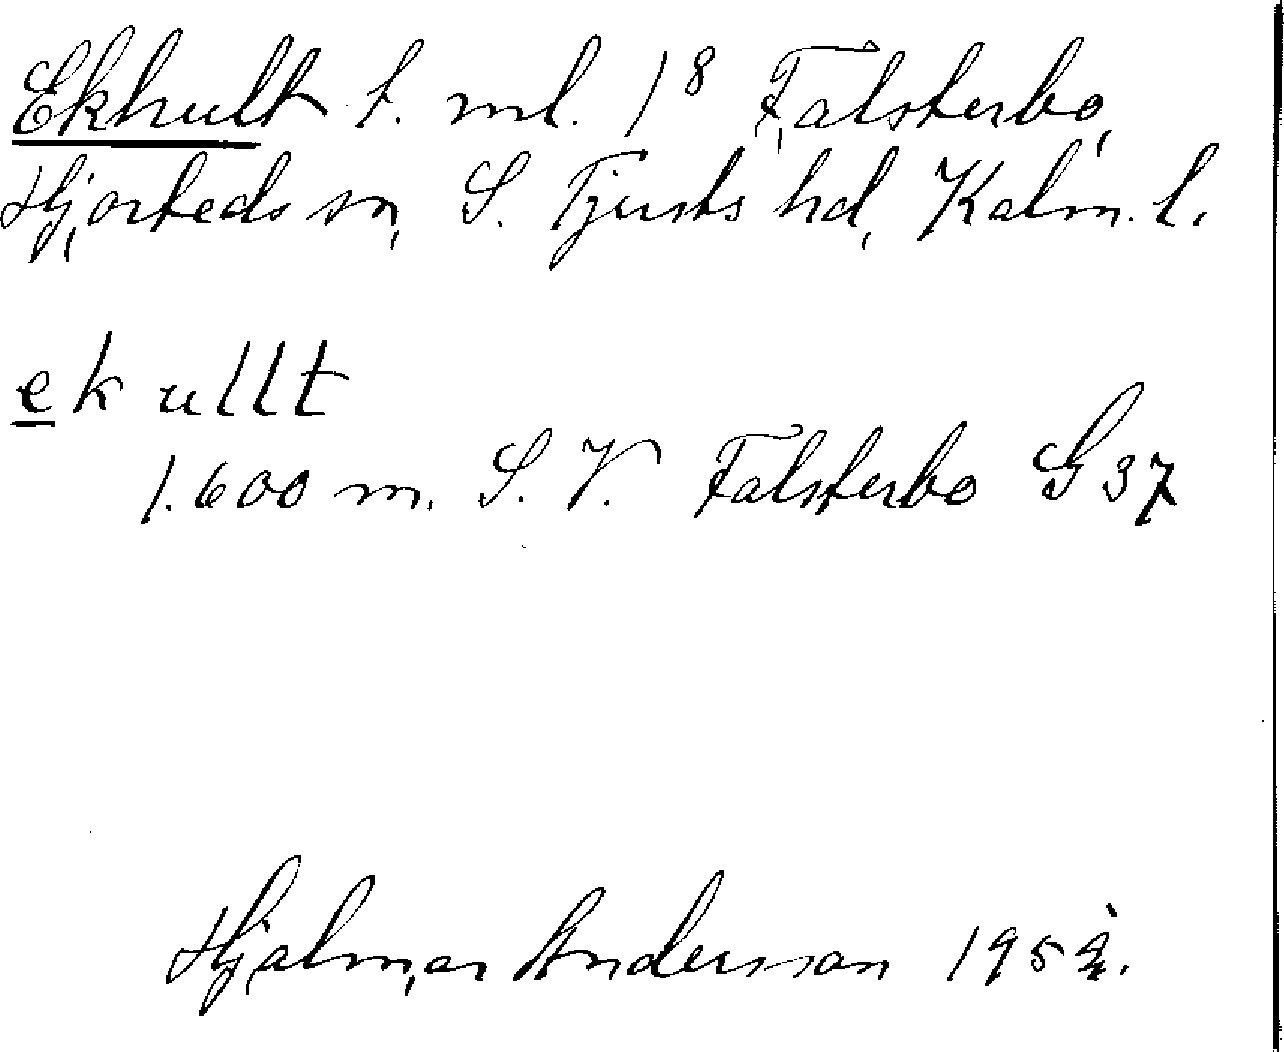 Ekhult t. ml. 1⁸ Falsterbo,
Hjorteds sn, S. Tjusts hd, Kalm. l.
ek ullt
1.600 m. S. V. Falsterbo G 37
Hjalmar Andersson